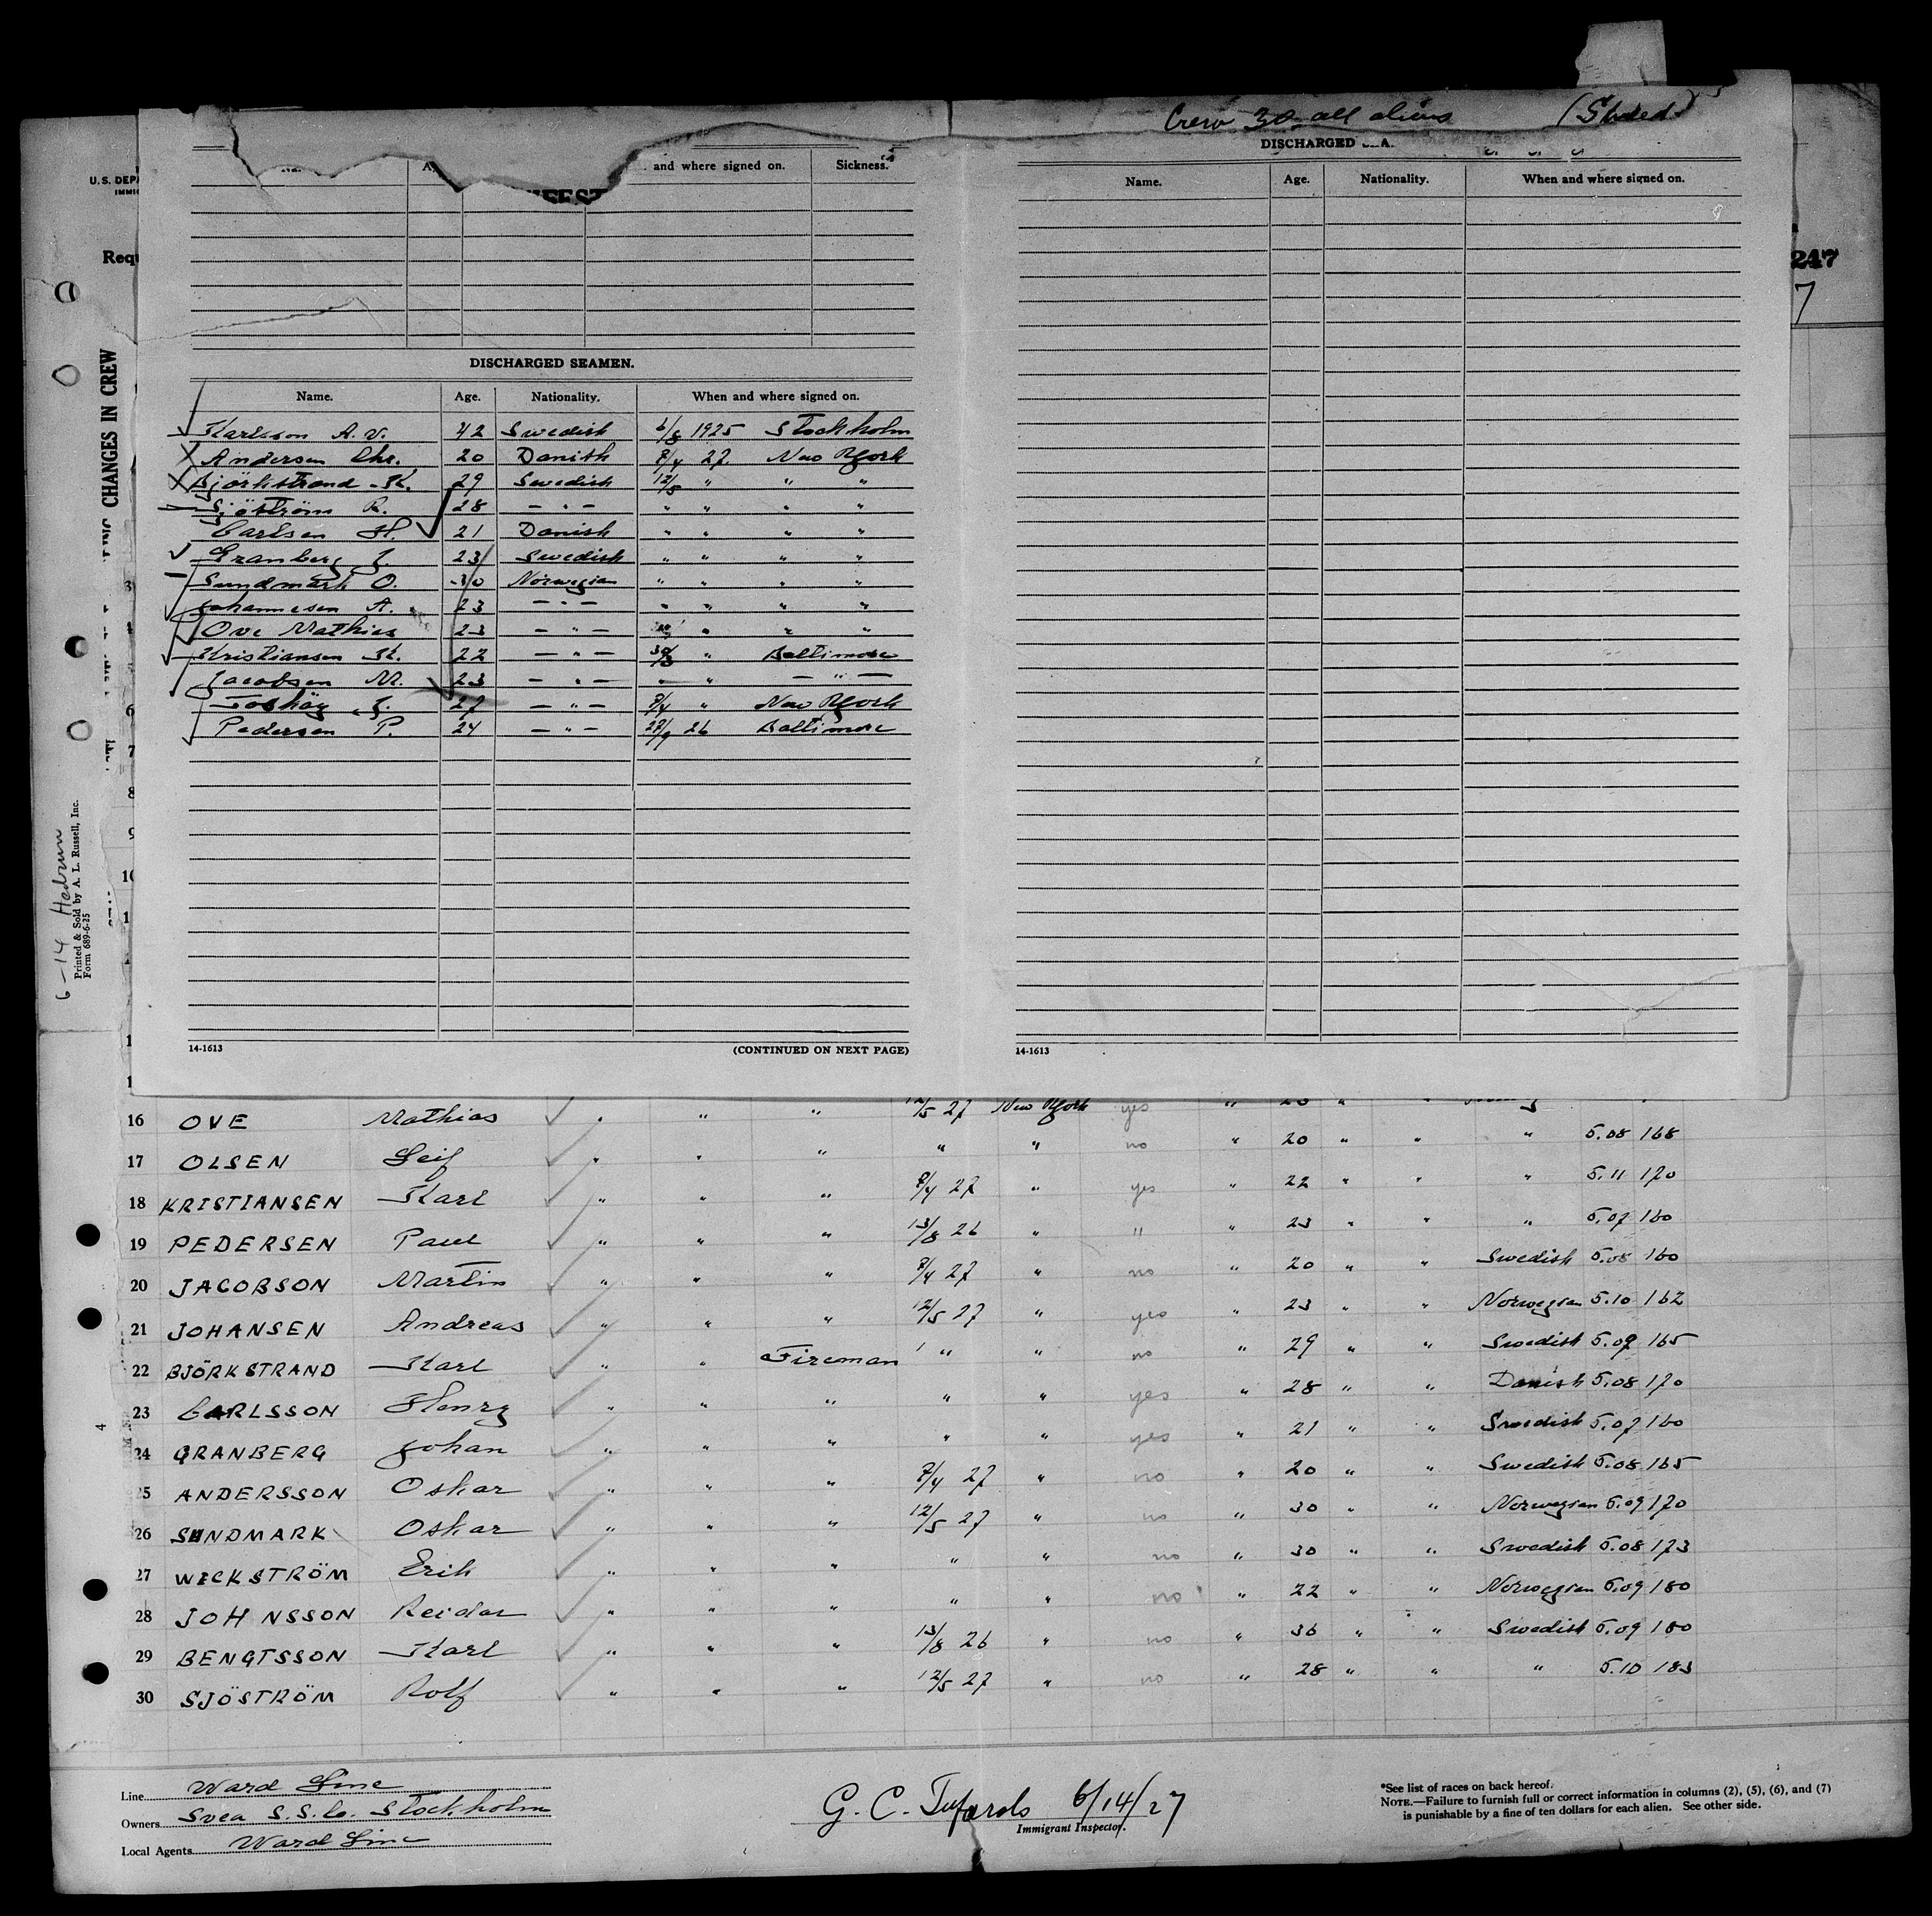 Crew 30 all aliens
DISCHARGED
U.S. DEP
IMMIG
and where signed on. Sickness.
Name. Age. Nationality. When and where signed on.
Requ
247
7
CHANGES IN CREW
DISCHARGED SEAMEN.
Name. Age. Nationality. When and where signed on.
Karlsson A. V. 42 Swedish 6/8 1925 Stockholm
Andersen Chr. 20 Danish 7/4 27. New York
Björkstrand K. 29 Swedish 12/5 " " "
Sjöström R. 28 — " — " " " "
Carlsen H. 21 Danish " " " "
Granberg J. 23 Swedish " " " "
Sundmark O. 30 Norwegian " " " "
Johannesen A. 23 — " — " " " "
Ove Mathias 23 — " — " " "
Kristiansen K. 22 — " — 30/3 " Baltimore
Jacobsen M. 23 — " — " " — " —
27 — " — 7/4 " New York
Pedersen P. 24 — " — 27/9 26 Baltimore
6-14 Hedrun
Printed & Sold by A. L. Russell, Inc.
Form 689-6-25
14-1613 (CONTINUED ON NEXT PAGE)
14-1613
16 OVE Mathias " " " 12/5 27 New York yes " 23 " "
17 OLSEN Leif " " " " " no " 20 " " " 5.08 168
18 KRISTIANSEN Karl " " " 7/4 27 " yes " 22 " " " 5.11 170
19 PEDERSEN Paul " " " 13/8 26 " " " 23 " " " 5.07 160
20 JACOBSON Martin " " " 7/4 27 " no " 20 " " Swedish 5.08 160
21 JOHANSEN Andreas " " " 12/5 27 " yes " 23 " " Norwegian 5.10 162
22 BJÖRKSTRAND Karl " " Fireman " " no " 29 " " Swedish 5.07 165
23 CARLSSON Henry " " " " " yes " 28 " " Danish 5.08 170
24 GRANBERG Johan " " " " " yes " 21 " " Swedish 5.07 160
25 ANDERSSON Oskar " " " 7/4 27 " no " 20 " " Swedish 5.08 165
26 SUNDMARK Oskar " " " 12/5 27 " no " 30 " " Norwegian 5.09 170
27 WECKSTRÖM Erik " " " " " no " 30 " " Swedish 5.08 173
28 JOHNSSON Reidar " " " " " no " 22 " " Norwegian 5.09 180
29 BENGTSSON Karl " " " 13/8 26 " no " 36 " " Swedish 5.09 180
30 SJÖSTRÖM Rolf " " " 12/5 27 " no " 28 " " " 5.10 183
Line Ward Line
Owners Svea S.S. Co. Stockholm
Local Agents Ward Line
G. C. 6/14/27
Immigrant Inspector.
*See list of races on back hereof.
NOTE.—Failure to furnish full or correct information in columns (2), (5), (6), and (7)
is punishable by a fine of ten dollars for each alien. See other side.